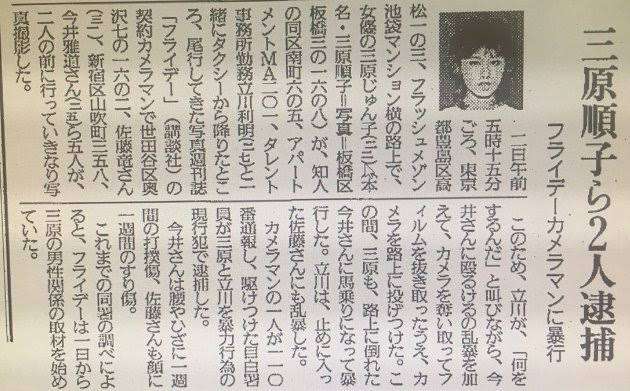 三原順子ら2人逮捕
フライデーカメラマンに暴行
二日午前
五時十五分
ごろ、東京
都豊島区高
松一の三、フラッシュメゾン
池袋マンション横の路上で、
女優の三原じゅん子=本
名・三原順子=写真=板橋区
板橋三の一六の八=が、知人
の同区南町六の五、アパート
メントMA二〇一、タレント
事務所勤務立川利明と一
緒にタクシーから降りたとこ
ろ、尾行してきた写真週刊誌
「フライデー」(講談社)の
契約カメラマンで世田谷区奥
沢七の一六の二、佐藤竜さん
、新宿区山吹町三五八、
今井雅道さんら五人が、
二人の前に行っていきなり写
真撮影した。
このため、立川が、「何を
するんだ」と叫びながら、今
井さんに殴るけるの乱暴を加
えて、カメラを奪い取ってフ
ィルムを抜き取ったうえ、カ
メラを路上に投げつけた。こ
の間、三原も、路上に倒れた
今井さんに馬乗りになって暴
行した。立川は、止めに入っ
た佐藤さんにも乱暴した。
カメラマンの一人が一一〇
番通報し、駆けつけた目白署
員が三原と立川を暴力行為の
現行犯で逮捕した。
今井さんは腰やひざに一週
間の打撲傷、佐藤さんも顔に
一週間のすり傷。
これまでの同署の調べによ
ると、フライデーは一日から
三原の男性関係の取材を始め
ていた。